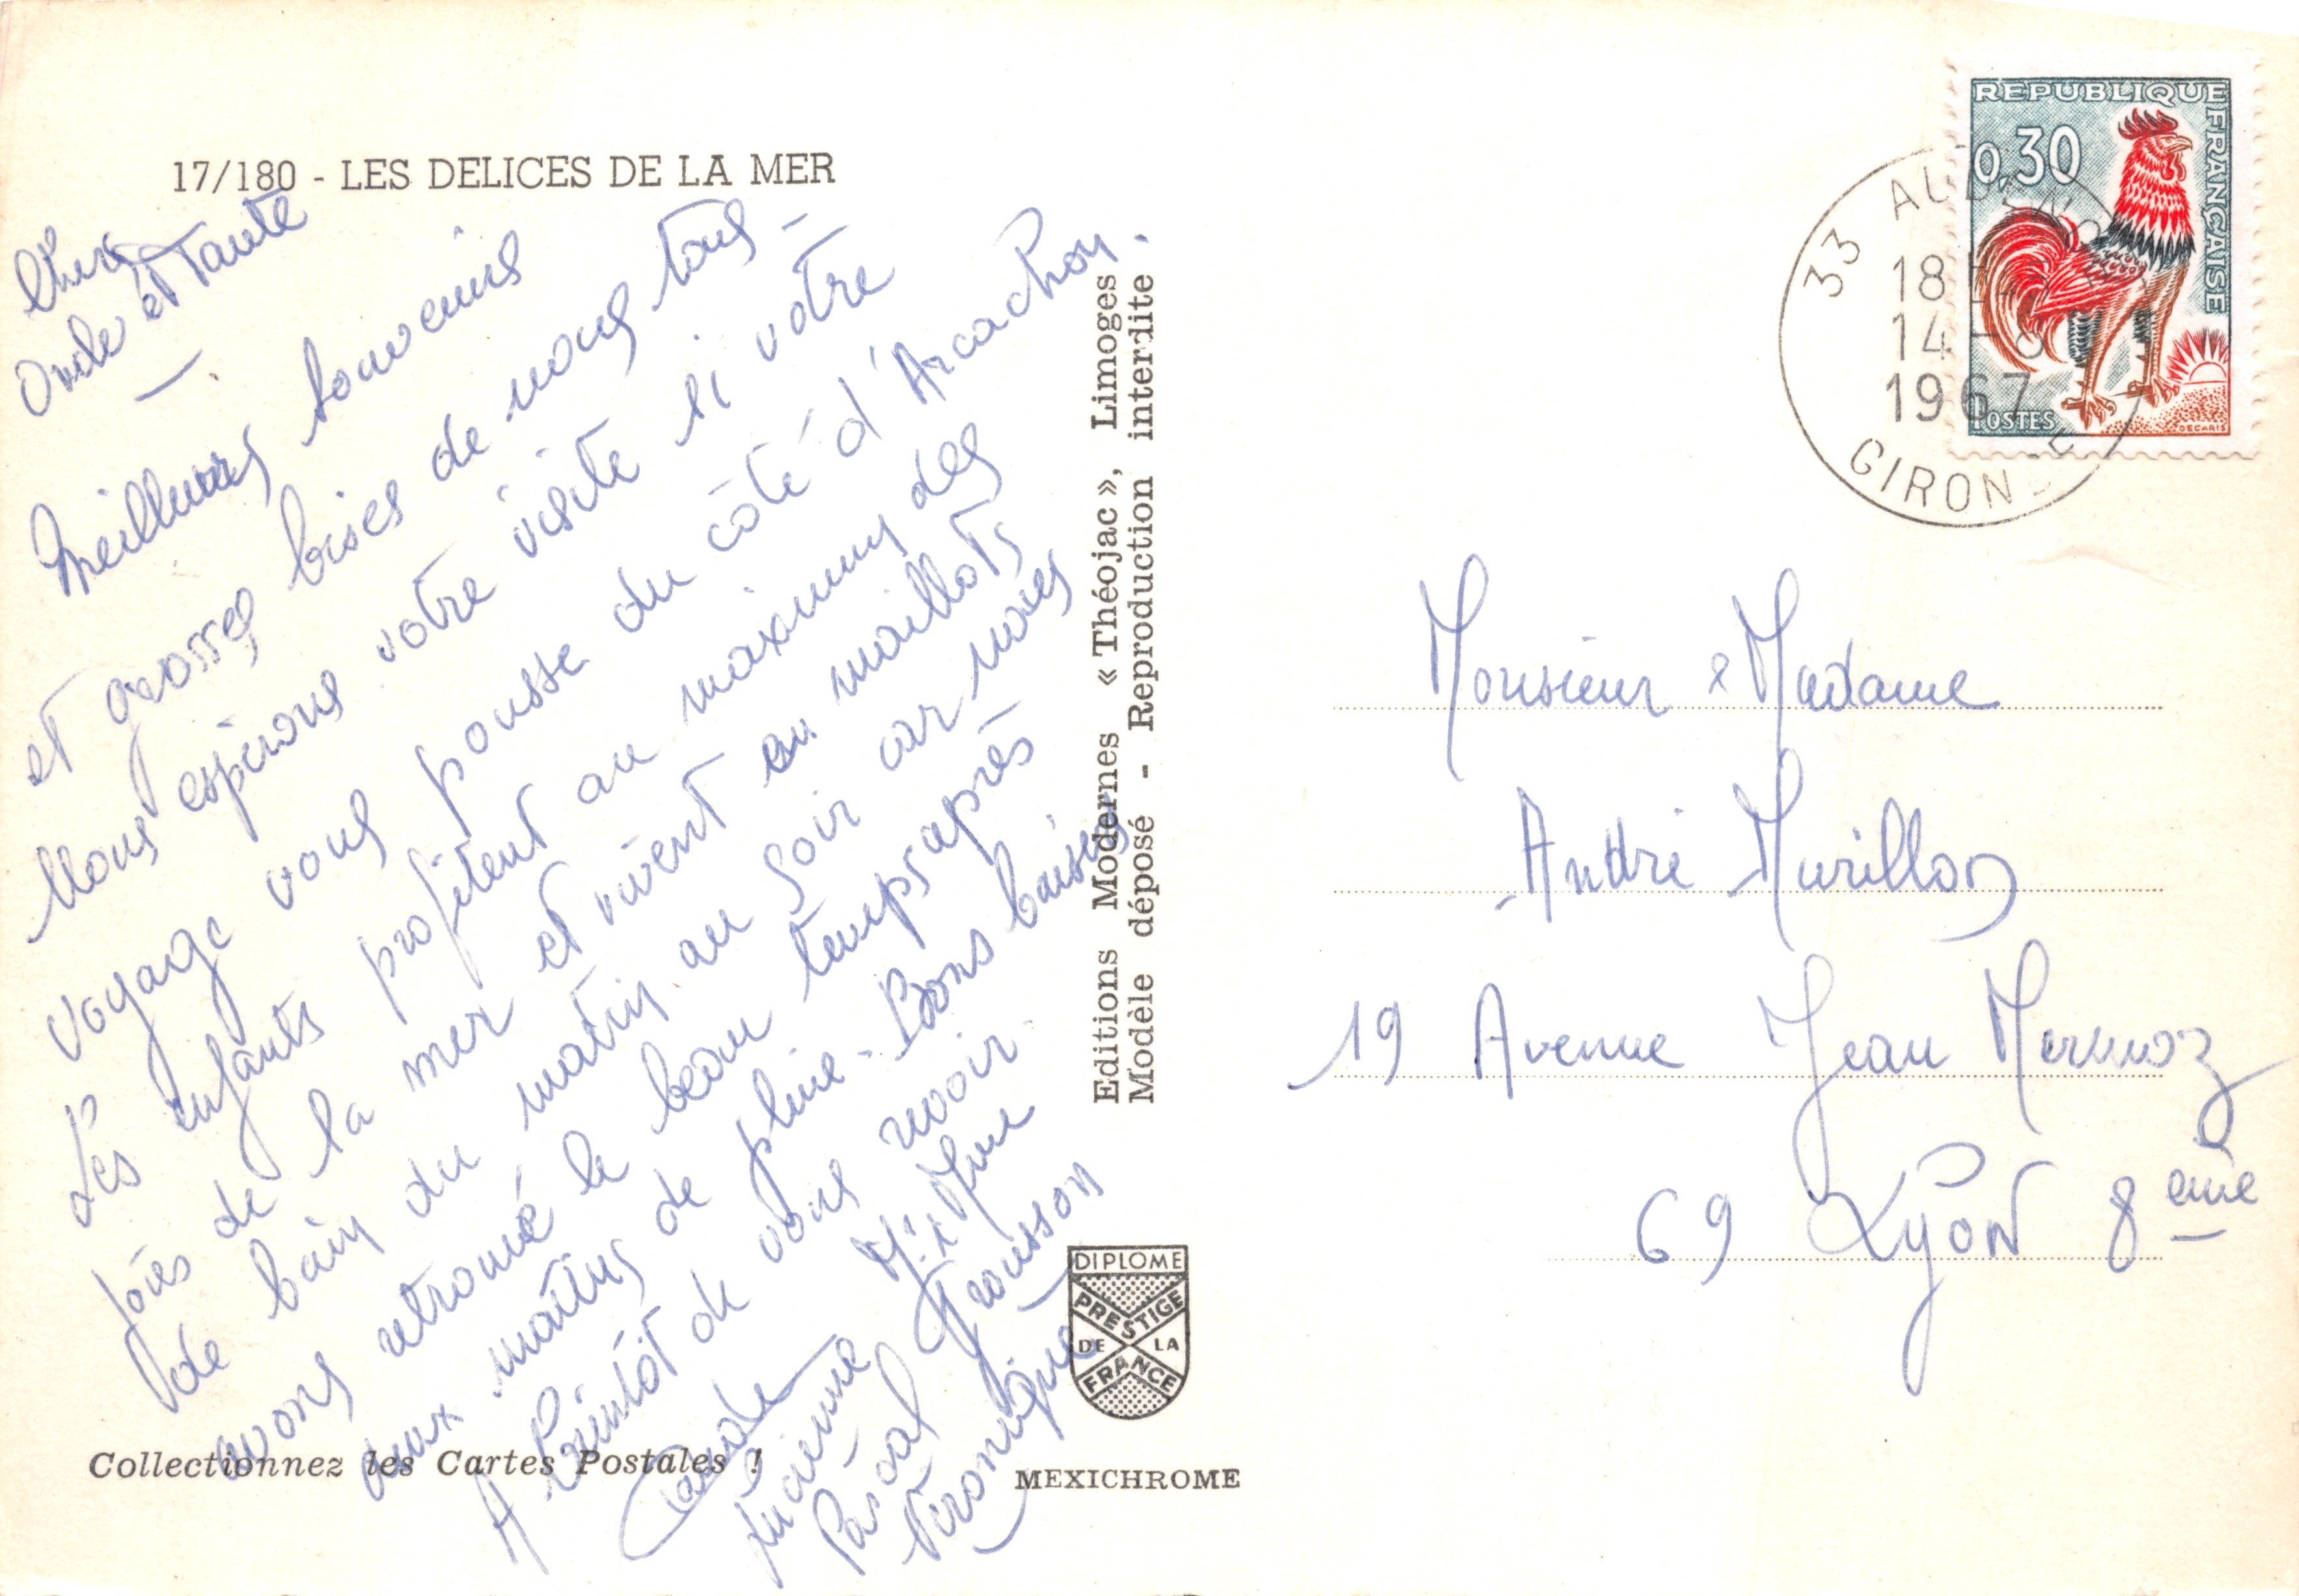 17/180 - LES DELICES DE LA MER
Chers
Oncle et Tante
Meilleurs souvenirs
et grosses bises de nous tous -
Nous espérons votre visite si votre
voyage vous pousse du côté d'Arcachon.
Les enfants profitent au maximum des
joies de la mer et vivent en maillots
de bain du matin au soir car nous
avons retrouvé le beau temps après
deux matins de pluie - Bons baisers
A bientôt de vous revoir.
Lucienne
Pascal
Véronique
Mr & Mme
Grousson
Editions Modernes « Théojac », Limoges
Modèle déposé - Reproduction interdite.
DIPLOME
PRESTIGE
DE LA
FRANCE
Collectionnez les Cartes Postales !
MEXICHROME
REPUBLIQUE FRANÇAISE
0,30
POSTES
DECARIS
33
18 H
14-8
1967
GIRONDE
Monsieur & Madame
André Murillon
19 Avenue Jean Mermoz
69 LYON 8eme